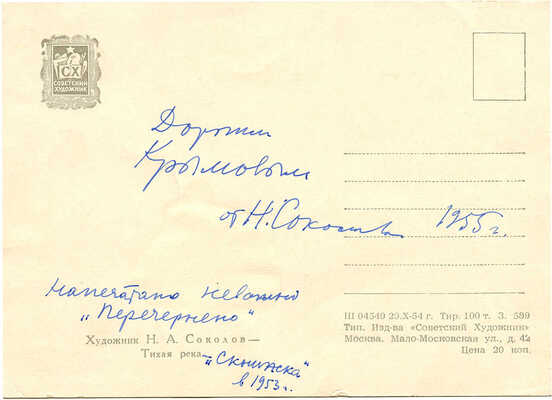 СХ
СОВЕТСКИЙ
ХУДОЖНИК
Дорогим
Крымовым
от Н. Соколова 1955 г.
Напечатано неважно
„Перечернено"
Художник Н. А. Соколов—
Тихая река—
в 1953 г.
Ш 04549 20.X-54 г. Тир. 100 т. З. 589
Тип. Изд-ва «Советский Художник»
Москва. Мало-Московская ул., д. 42
Цена 20 коп.